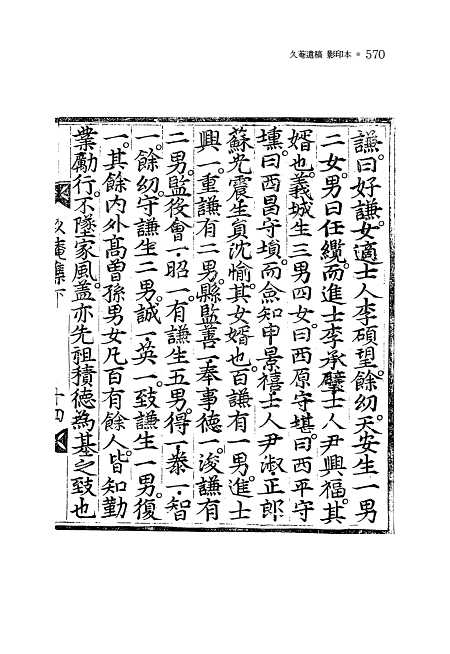 久菴遺稿 影印本 • 570
謙曰好謙女適士人李碩望餘幼天安生一男
二女男曰任纜而進士李承璧士人尹興福其
婿也義城生三男四女曰西原守堪曰西平守
壎曰西昌守塤而僉知申景禧士人尹淑正郎
蘇光震生員沈愉其女婿也百謙有一男進士
興一重謙有二男縣監善一奉事德一浚謙有
二男監役會一昭一有謙生五男得一泰一智
一餘幼守謙生二男誠一英一致謙生一男復
一其餘內外高曾孫男女凡百有餘人皆知勤
業勵行不墜家風盖亦先祖積德爲基之致也
久菴集下
十四